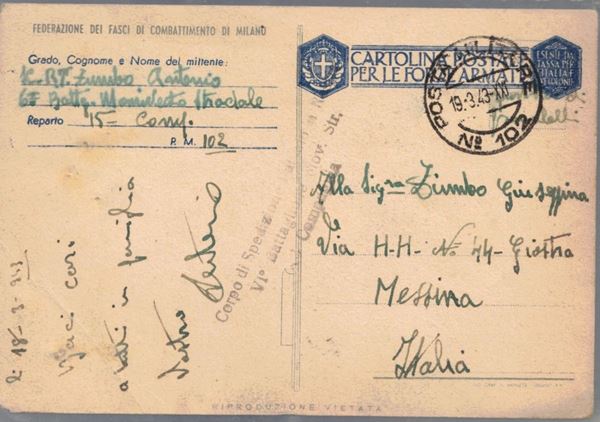 FEDERAZIONE DEI FASCI DI COMBATTIMENTO DI MILANO
Grado, Cognome e Nome del mittente:
Zumbo Antonio
6° Battg. Stradale
Reparto 15ª Comp.
P. M. 102
CARTOLINA POSTALE
PER LE FORZE ARMATE
ESENTE DA
TASSA PER
L'ITALIA E
POSTA MILITARE
19.3.43-XXI
Nº 102
Corpo di Spedizione
VIº Battaglione Mov. Str.
Compagnia
Alla Sigra Zumbo Giuseppina
Via H-H- Nº 44- Giostra
Messina
Italia
li 18-3-943
Baci cari
a tutti in famiglia
Vostro Antonio
RIPRODUZIONE VIETATA